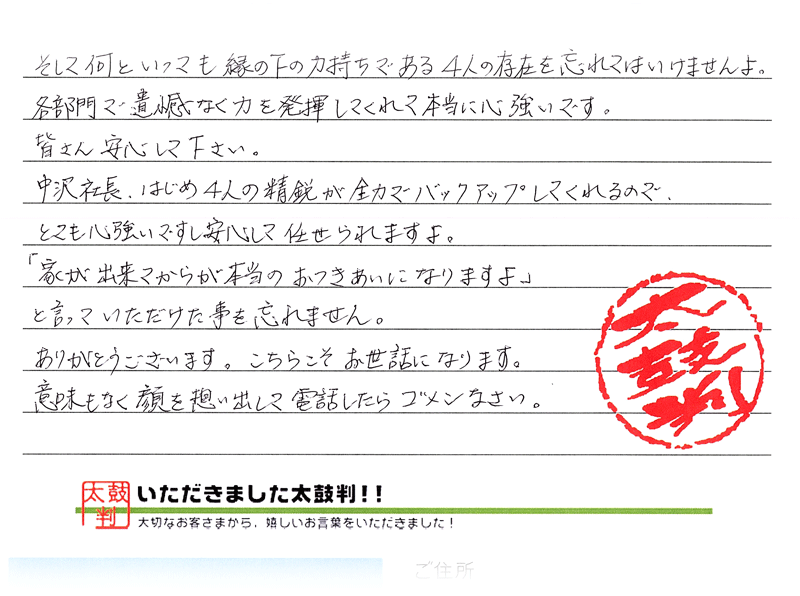 そして何といっても縁の下の力持ちである4人の存在を忘れてはいけませんよ。
各部門で遺憾なく力を発揮してくれて本当に心強いです。
皆さん安心して下さい。
中沢社長、はじめ4人の精鋭が全力でバックアップしてくれるので、
とても心強いですし安心して任せられますよ。
「家が出来てからが本当のおつきあいになりますよ」
と言っていただけた事を忘れません。
ありがとうございます。こちらこそお世話になります。
意味もなく顔を想い出して電話したらゴメンなさい。
太鼓判
太鼓判
いただきました太鼓判!!
大切なお客さまから、嬉しいお言葉をいただきました!
ご住所